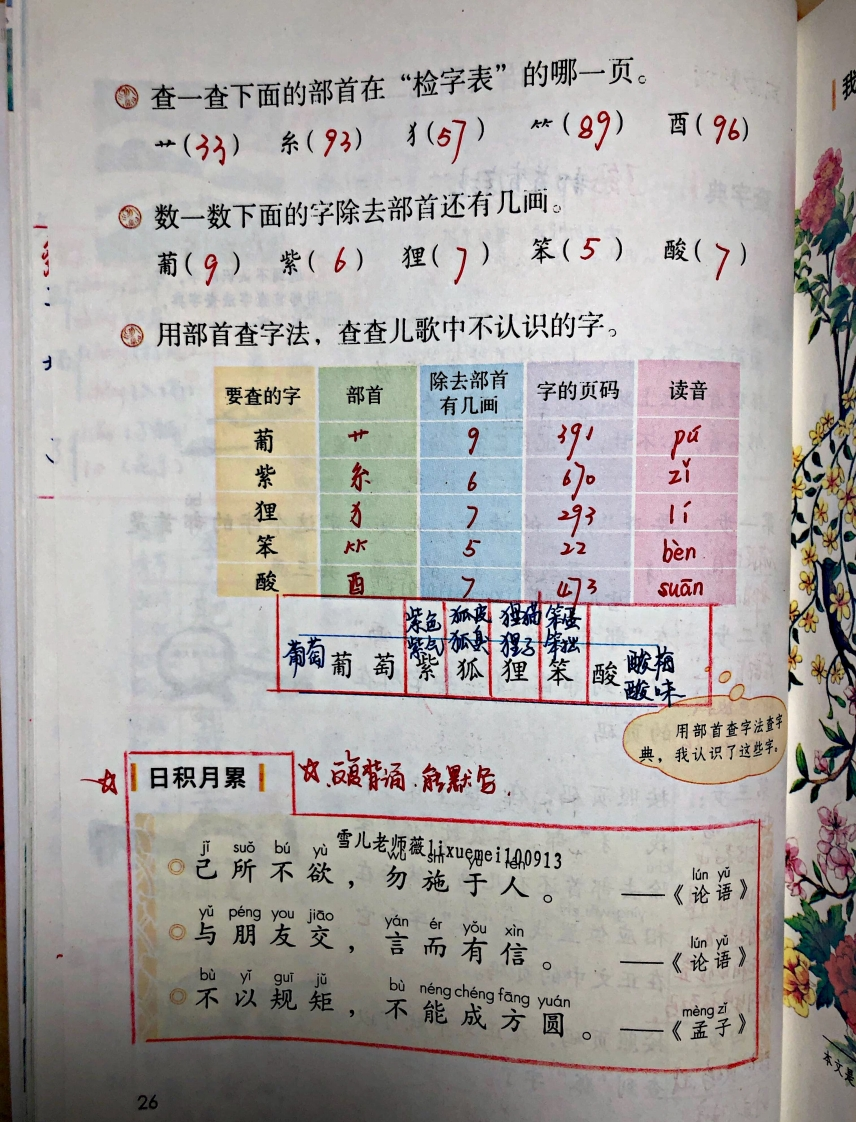 查一查下面的部首在“检字表”的哪一页。
艹(33) 糸(93) 犭(57) ⺮(89) 酉(96)
数一数下面的字除去部首还有几画。
葡(9) 紫(6) 狸(7) 笨(5) 酸(7)
用部首查字法，查查儿歌中不认识的字。
要查的字 部首 除去部首有几画 字的页码 读音
葡 艹 9 391 pú
紫 糸 6 670 zǐ
狸 犭 7 293 lí
笨 ⺮ 5 22 bèn
酸 酉 7 473 suān
紫色 狐皮 狸猫 笨蛋
紫气 狐臭 狸子 笨拙
葡萄 葡 萄 紫 狐 狸 笨 酸 酸梅
酸味
用部首查字法查字
典，我认识了这些字。
日积月累 反复背诵.能默写.
雪儿老师薇lixuemei100913
jǐ suǒ bú yù wù shī yú rén lún yǔ
己所不欲，勿施于人。 ——《论语》
yǔ péng you jiāo yán ér yǒu xìn lún yǔ
与朋友交，言而有信。 ——《论语》
bù yǐ guī jǔ bù néng chéng fāng yuán mèng zǐ
不以规矩，不能成方圆。 ——《孟子》
26
我
本文是